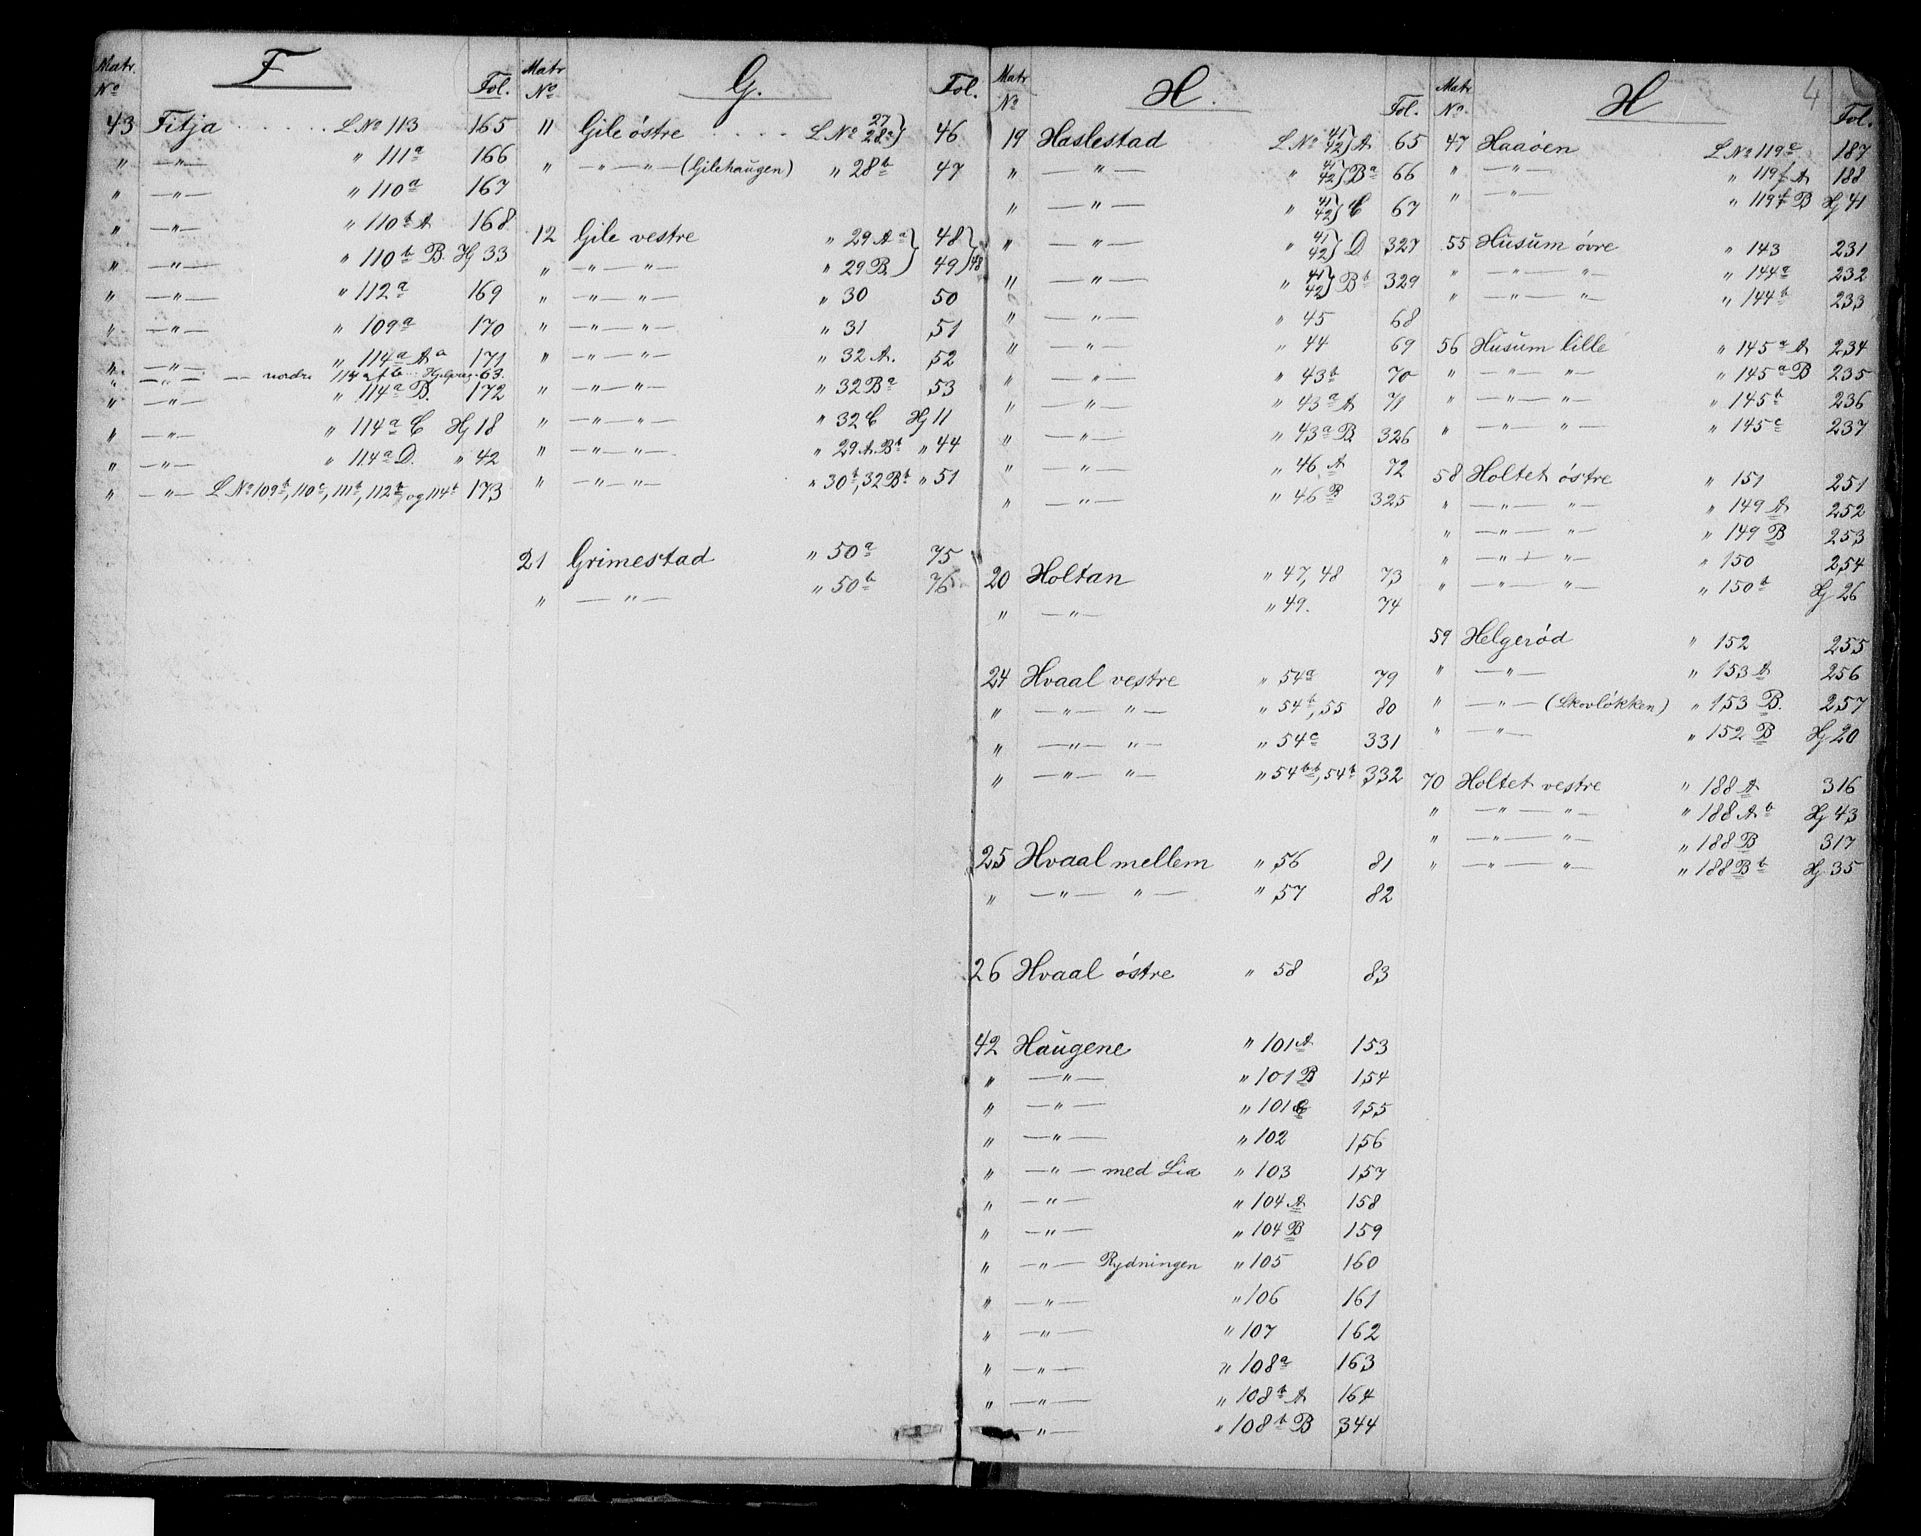 F
Matr. Nº Fol.
43 Fitja . . . . . LNº 113 165
" —"— " 111a 166
" —"— " 110a 167
" —"— " 110b A 168
" —"— " 110b B. Hj 33
" —"— " 112a 169
" —"— " 109a 170
" —"— " 114a Aa 171
" —"— nordre 114 a f b Hjelpreg. 63.
" —"— " 114a B. 172
" —"— " 114a C Hj 18
" —"— " 114a D. " 42
" —"— LNº 109b, 110c, 111b, 112b, og 114b 173
G.
Matr Nº Fol.
11 Gile östre . . . . LNº 27 28a} 46
" —"—"— (Gilehaugen) " 28b 47
12 Gile vestre " 29 Aa} 48}
" —"—"— " 29 B.} 49} 48
" —"—"— " 30 50
" —"—"— " 31 51
" —"—"— " 32 A. 52
" —"—"— " 32 Ba 53
" —"—"— " 32 C Hj 11
" —"—"— " 29 A. Bb " 44
" —"—"— " 30b, 32 Bb " 51
21 Grimestad " 50a 75
" —"— " 50b 76
H.
Matr Nº Fol.
19 Haslestad LNº 41 42} A 65
" —"— " 41 42} Ba 66
" —"— " 41 42} C 67
" —"— " 41 42} D 327
" —"— " 41 42} Bb 329
" —"— " 45 68
" —"— " 44 69
" —"— " 43b 70
" —"— " 43a A 71
" —"— " 43a B. 326
" —"— " 46 A 72
" —"— " 46 B 325
20 Holtan " 47, 48 73
" —"— " 49. 74
24 Hvaal vestre " 54a 79
" —"—"— " 54b, 55 80
" —"—"— " 54c 331
" —"—"— " 54bb, 54b 332
25 Hvaal mellem " 56 81
" —"—"— " 57 82
26 Hvaal östre " 58 83
42 Haugene " 101 A 153
" —"— " 101 B 154
" —"— " 101 C 155
" —"— " 102 156
" —"— med Lia " 103 157
" —"— " 104 A 158
" —"— " 104 B 159
" —"— Rydningen " 105 160
" —"— " 106 161
" —"— " 107 162
" —"— " 108a 163
" —"— " 108b A 164
" —"— " 108b B 344
H 4
Matr Nº Fol.
47 Haaöen LNº 119e 187
" —"— " 119f A 188
" —"— " 119f B Hj 41
55 Husum övre " 143 231
" —"—"— " 144a 232
" —"—"— " 144b 233
56 Husum lille " 145a A 234
" —"—"— " 145a B 235
" —"—"— " 145b 236
" —"—"— " 145c 237
58 Holtet östre " 151 251
" —"—"— " 149 A 252
" —"—"— " 149 B 253
" —"—"— " 150 254
" —"—"— " 150b Hj 26
59 Helgeröd " 152 255
" —"— " 153 A 256
" —"— (Skovlökken) " 153 B. 257
" —"— " 152 B Hj 20
70 Holtet vestre " 188 A 316
" —"—"— " 188 Ab Hj 43
" —"—"— " 188 B 317
" —"—"— " 188 Bb Hj 35